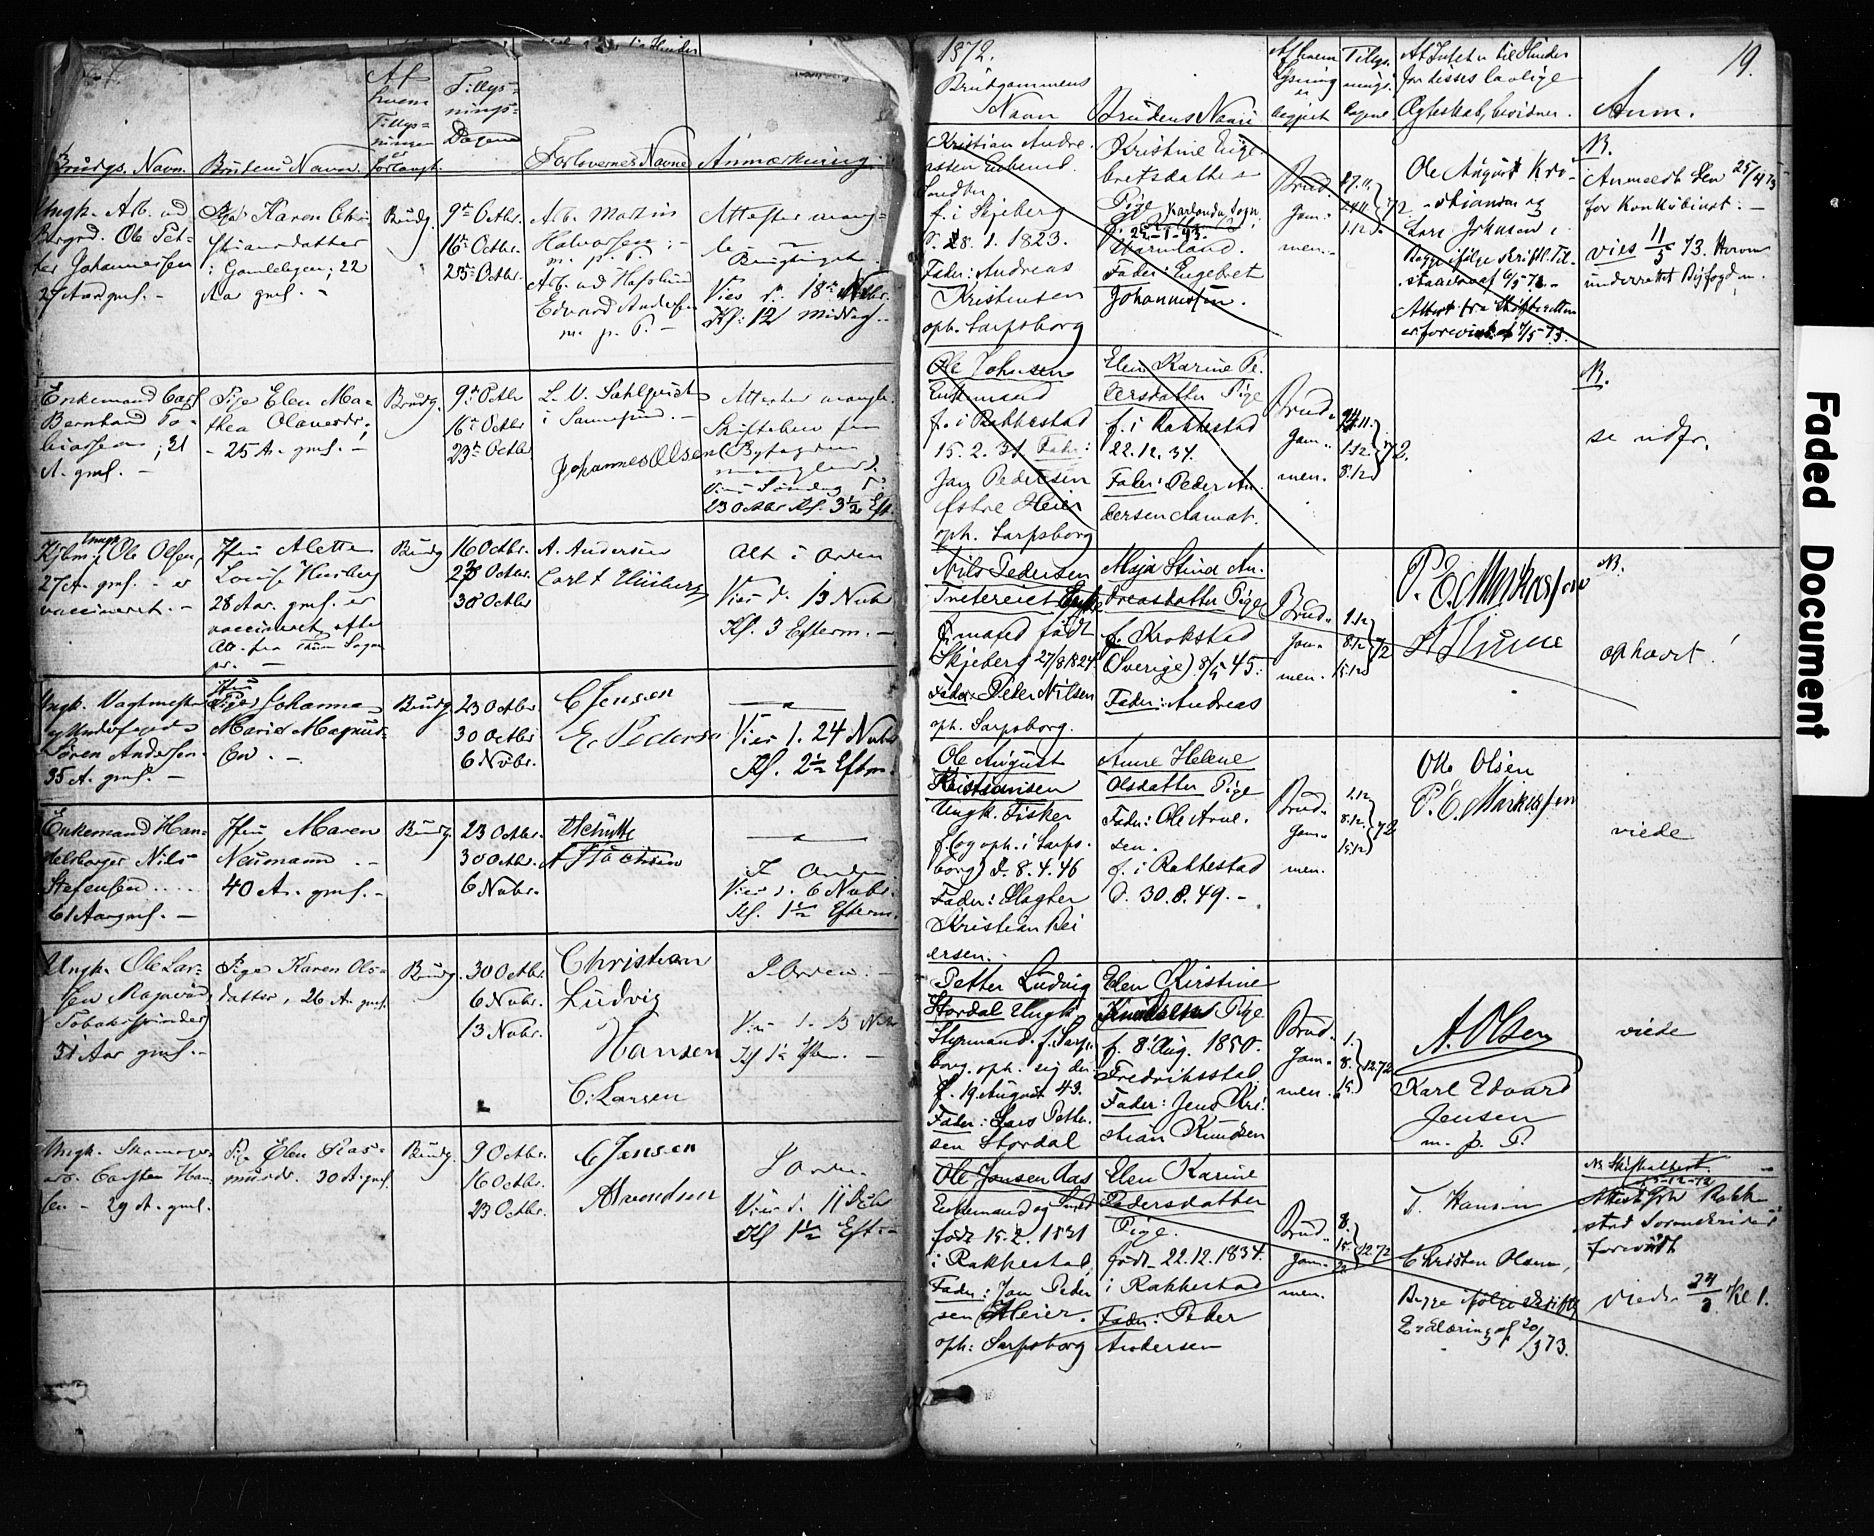 Af
hvem
Tillys=
ningen
er
forlangt.
Tillys=
nings=
Dagene
Brudgs. Navn.
Brudens Navn.
Forlovernes Navne
Anmærkning.
Ungk. Arb. ved
Borgrd. Ole Pet-
ter Johannessen
27 Aar gml. -
Pige Karen Chri-
stiansdatter
i Gamlebyen; 22
Aar gml. -
Brudg.
9de Octbr.
16de Octbr.
23de Octbr.
Arb. Martin
Halvorsen
m. p. P.
Arb. ved Hafslund
Edvard Andersen
m. p. P. -
Attester mang-
le
Viet d. 18de Nvbr.
Kl: 12 Middag.
Enkemand Carl
Bernhard To-
biassen, 31
A. gml. -
Pige Elen Ma-
thea Olavesdr.,
- 25 A. gml. -
Brudg.
9de Octbr
16de Octbr
23de Octbr
L. M. Sahlqvist
i Sannesund. -
Johannes Olsen
Attester mangle.
Skiftebev fra
Byfogden
mangler.
Viet Søndag d.
23 Octbr Kl. 3½ Eft.
Ungk.
Ole Olsen,
27 A. gml. - er
vaccineret. -
Jfru Alette
Louise Husberg
28 Aar. gml. er
vaccineret efter
Att. fra Thune Sogne
pr. -
Brudg
16 Octbr.
23 Octbr.
30 Octbr
A. Andersen
Carl F Husberg
Alt i Orden
Viet d. 13 Nvbr
Kl. 3 Efterm. -
Ungk. Vagtmester
og Underfoged
Søren Andersen
35 A. gml. -
Jfru
Pige Johanna
Marie Magnus-
sen. -
Brudg.
23 Octbr
30 Octbr
6 Nvbr.
C Jensen
E. Pedersen
Viet d. 24 Nvbr
Kl. 2½ Eftm.
Enkemand Han-
delsborger Nils
Stefensen
61 Aar gml. -
Jfru Maren
Neumann. -
40 A. gml. -
Brudg.
23 Octbr.
30 Octbr.
6 Nvbr.
I Orden
Viet d. 6 Nvbr.
Kl. 1½ Efterm.
Ungk. Ole Lar-
sen
Tobaksspinder
31 Aar gml. -
Pige Karen Ols-
datter, 26 A. gml.
Brudg.
30 Octbr.
6 Nvbr.
13 Nvbr.
Christian
Ludvig
Hansen
C. Larsen
I Orden. -
Viet d. 13 Nvbr
Kl 1½ Eftm. -
Ungk. Skomager-
sv. Carsten Han-
sen - 29 A. gml.
Pige Elen Ras-
musdr. 30 A. gml.
Brudg.
9 Octbr.
16 Octbr.
23 Octbr.
C Jensen
A Svendsen
I Orden
Viet d. 11 Dcbr
Kl 1½ Eft. -
1872.
19.
Brudgommens
Navn
Brudens Navn
Af hvem
Lysning
er
begjært
Tillys.
nings.
dagene
At Intet er til Hinder
for disses lovlige
Ægteskab, bevidner.
Anm.
Kristian Andre-
assen Enkemd.
f. i Skjeberg
d. 28. 1. 1823.
Fader: Andreas
Kristensen
oph. Sarpsborg
Kristine Enge-
bretsdatter
Pige Karlanda Sogn
Värmland.
Fader: Engebret
Johannessen.
Brud-
gom-
men.
17.11.
24.11.
1.12.
72.
Ole August Kri-
stiansen og
Lars Johnsen
Begge ifølge skriftl. Til-
staaelse af 6/5 73. -
Attest fra Skifteretten
er forevist 7/5 73.
NB.
Anmeldt den 25/4 73
for Konkubinat. -
viet 11/5 73. Herom
underrettet Byfogden.
Ole Johnsen
Enkemand
f. i Rakkestad
15. 2. 31 Fader:
Jon Pedersen
Østre Heier
oph. Sarpsborg
Elen Karine Pe-
dersdatter Pige
f. i Rakkestad
22. 12. 34.
Fader: Peder An-
dersen Aamot.
Brud-
gom-
men.
24.11.
1.12.
8.12
72.
NB.
se ndfr.
Nils Pedersen
Træteriet Enke
mand født
Skjeberg 27/8 1824
Fader: Peder Nilsen
oph. Sarpsborg.
Maja Stina An-
dreasdatter Pige
f. Krokstad
(Sverige) 8/5 45.
Fader: Andreas
Brud-
gom-
men.
1.12
8.12
15.12
72
P. E. Markussen
A Thune
NB.
ophævet!
Ole August
Kristiansen
Ungk. Fisker
f. (og oph. i Sarps-
borg) d. 8. 4. 46
Fader: Slagter
Kristian Rei
ersen. -
Anne Helene
Olsdatter Pige
Fader: Ole Arne-
sen.
f. i Rakkestad
d. 30. 8. 49. -
Brud-
gom-
men.
1.12
8.12
15.12
72
Otto Olsen
P. E. Markussen
viede
Petter Ludvig
Stordal Ungk.
Styrmand. f. Sarps-
borg. oph. sig der
f. 19 August 43.
Fader: Lars Petter-
sen Stordal
Elen Kirstine
Knudsen Pige
f. 8 Aug. 1850.
Fredrikstad
Fader: Jens Kri-
stian Knudsen
Brud-
gom-
men.
1.
8.
15.
12.72
A. Olsen
Karl Edvard
Jensen
m. p. P.
viede
Ole Jonsen Aas
Enkemand og Smed
født 15. 2. 1831
i Rakkestad
Fader: Jon Peder
sen Heier.
oph: Sarpsborg
Elen Karine
Pedersdatter
Pige.
født 22. 12. 1834.
i Rakkestad
Fader: Peder
Andersen
Brud-
gom-
men.
8.
15.
22.
12.72
T. Hansen
Christen Olsen,
Begge ifølge skriftlig
Erklæring af 20/3 73.
NB Skifteattest
Attest fra Rakke-
stad Sorenskriveri
forevist
viede 24/3 Kl 1.
Faded Document